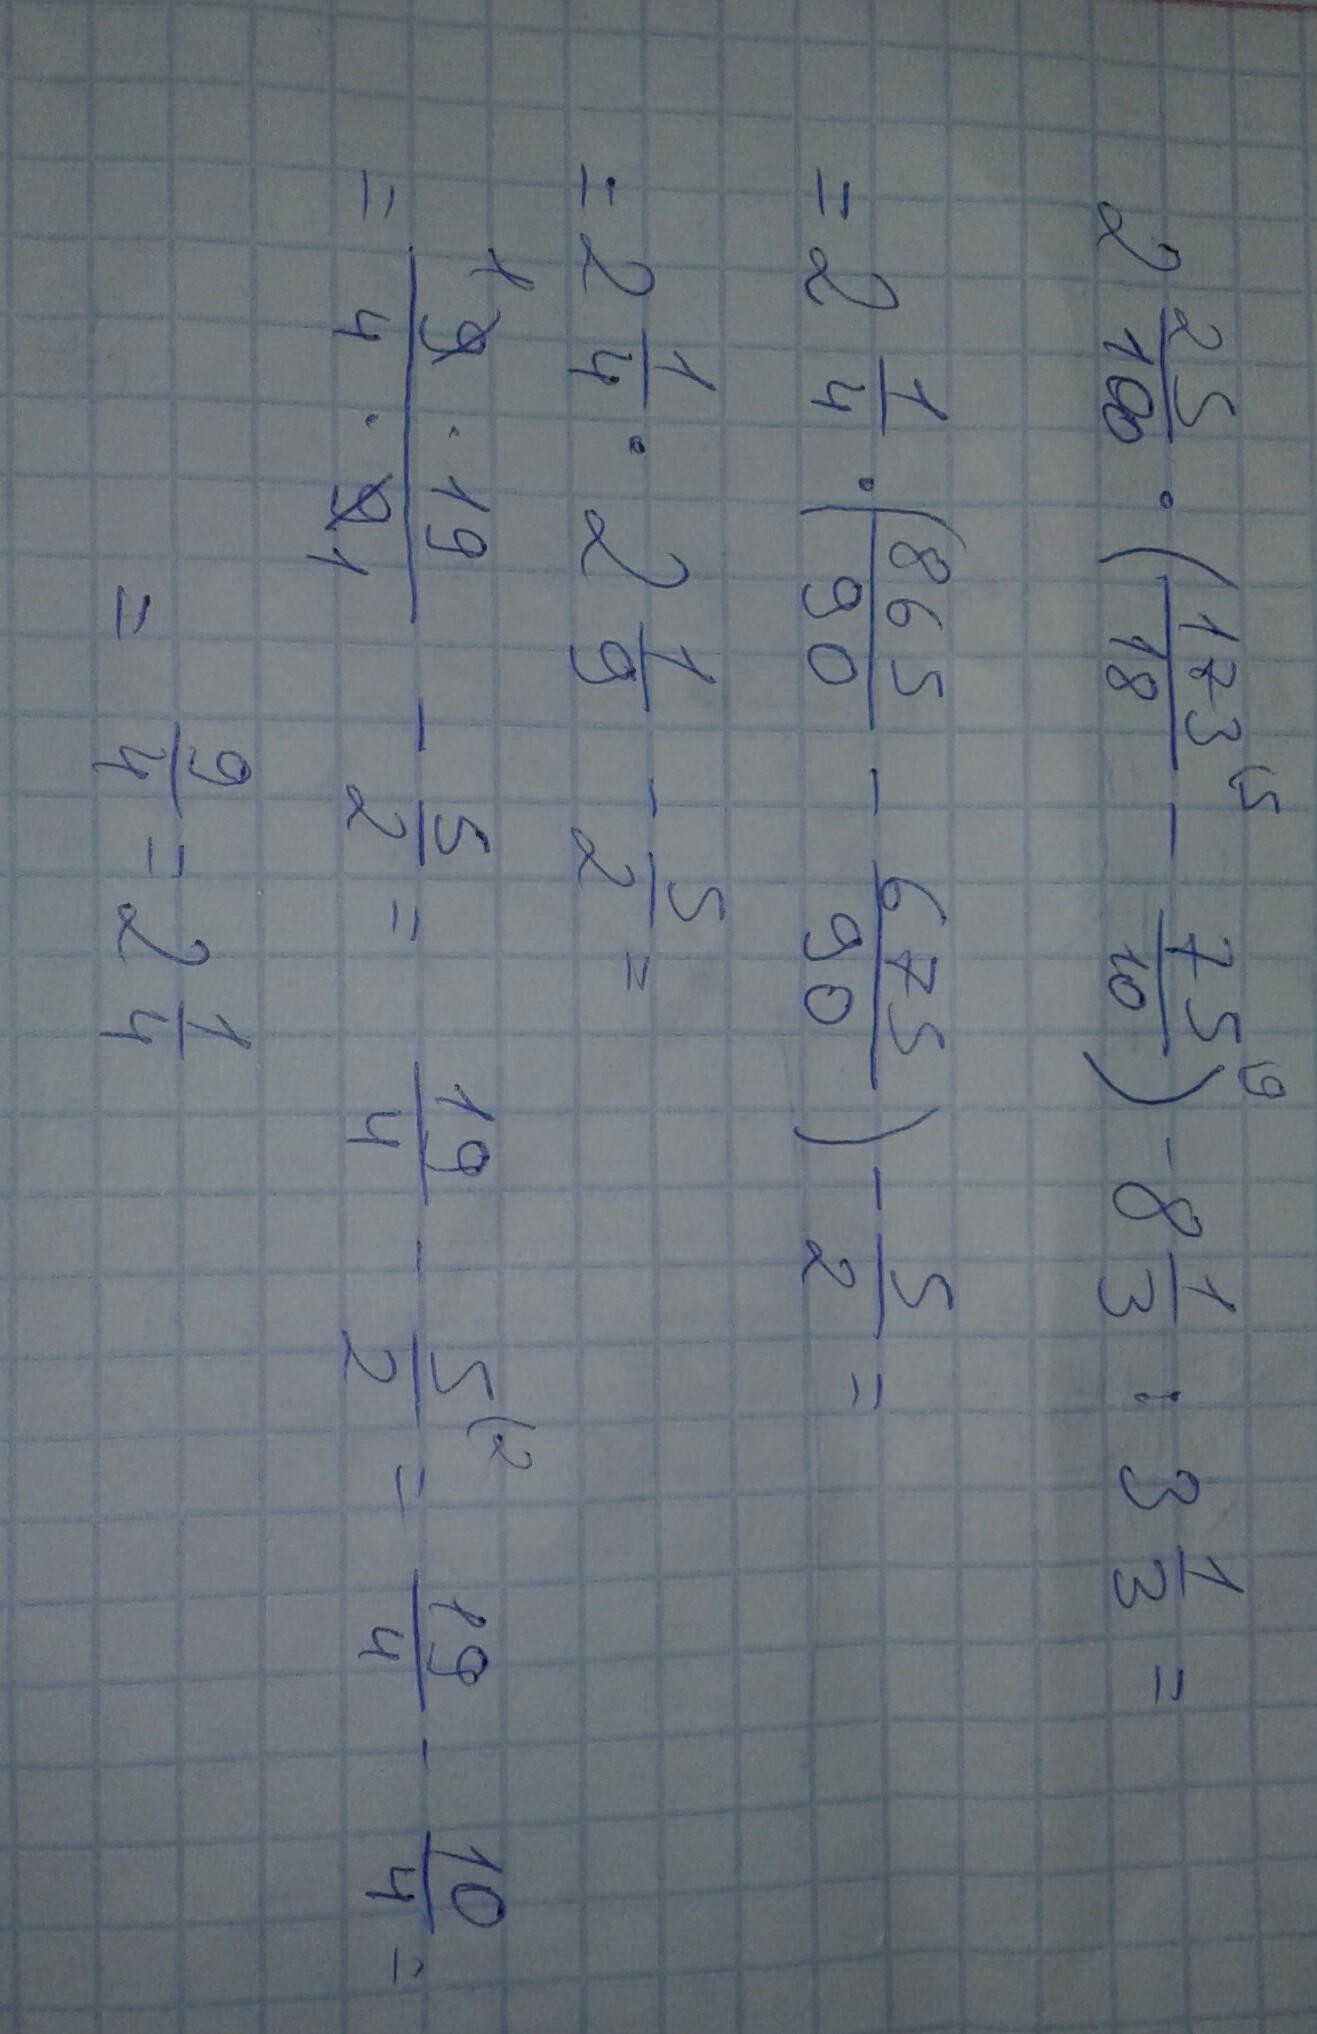 2 25/100 · (173/18 (5 - 75/10 (9) - 8 1/3 : 3 1/3 =
= 2 1/4 · (865/90 - 675/90) - 5/2 =
= 2 1/4 · 2 1/9 - 5/2 =
= 1 9 · 19 / 4 · 9 1 - 5/2 = 19/4 - 5/2 (2 = 19/4 - 10/4 =
= 9/4 = 2 1/4